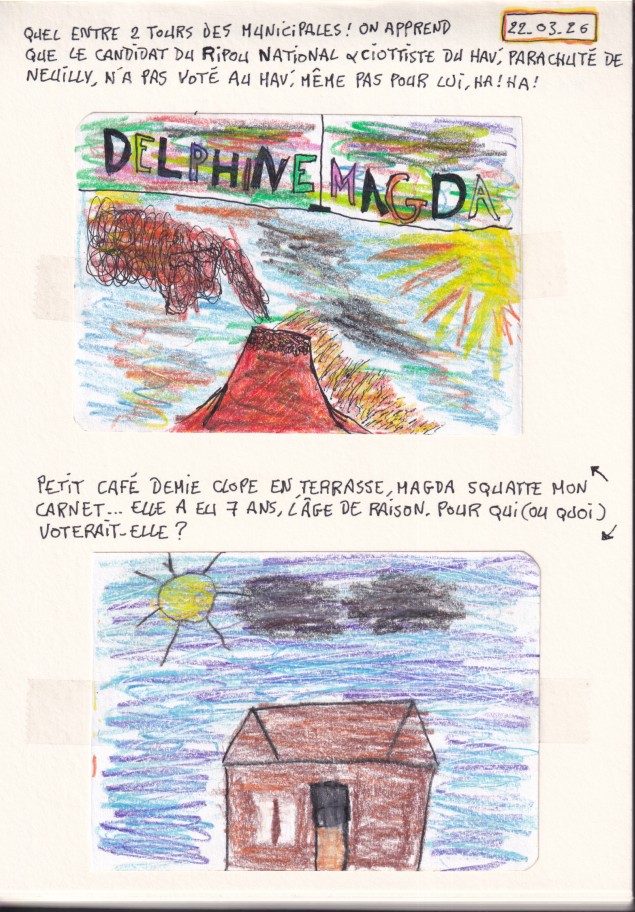 QUEL ENTRE 2 TOURS DES MUNICIPALES! ON APPREND
22_03_26
QUE LE CANDIDAT DU RIPOU NATIONAL & CIOTTISTE DU HAV', PARACHUTÉ DE
NEUILLY, N'A PAS VOTÉ AU HAV', MÊME PAS POUR LUI, HA! HA!
DELPHINE MAGDA
PETIT CAFÉ DEMIE CLOPE EN TERRASSE, MAGDA SQUATTE MON
CARNET... ELLE A EU 7 ANS, L'ÂGE DE RAISON. POUR QUI (OU QUOI)
VOTERAIT-ELLE?